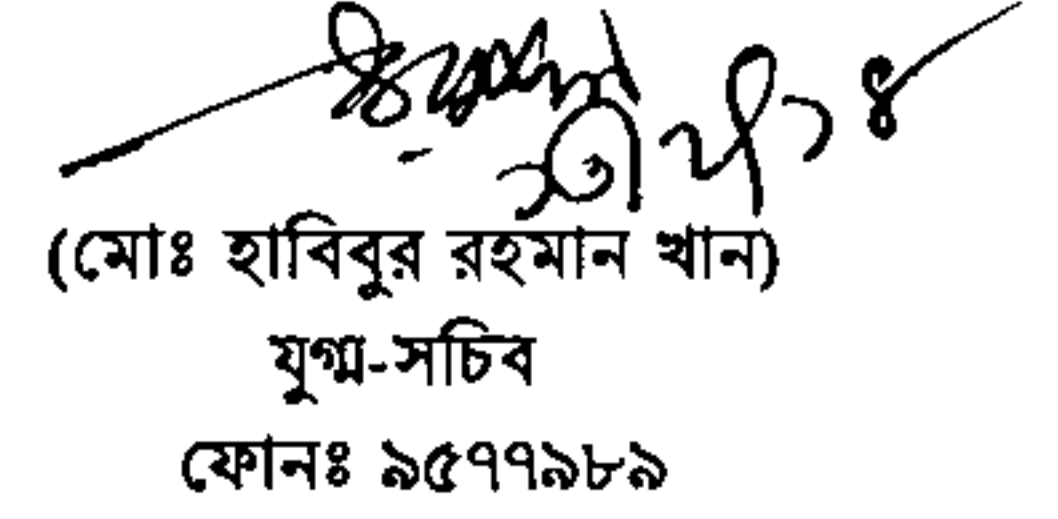 (মোঃ হাবিবুর রহমান খান)
যুগ্ম-সচিব
ফোনঃ ৯৫৭৭৯৮৯